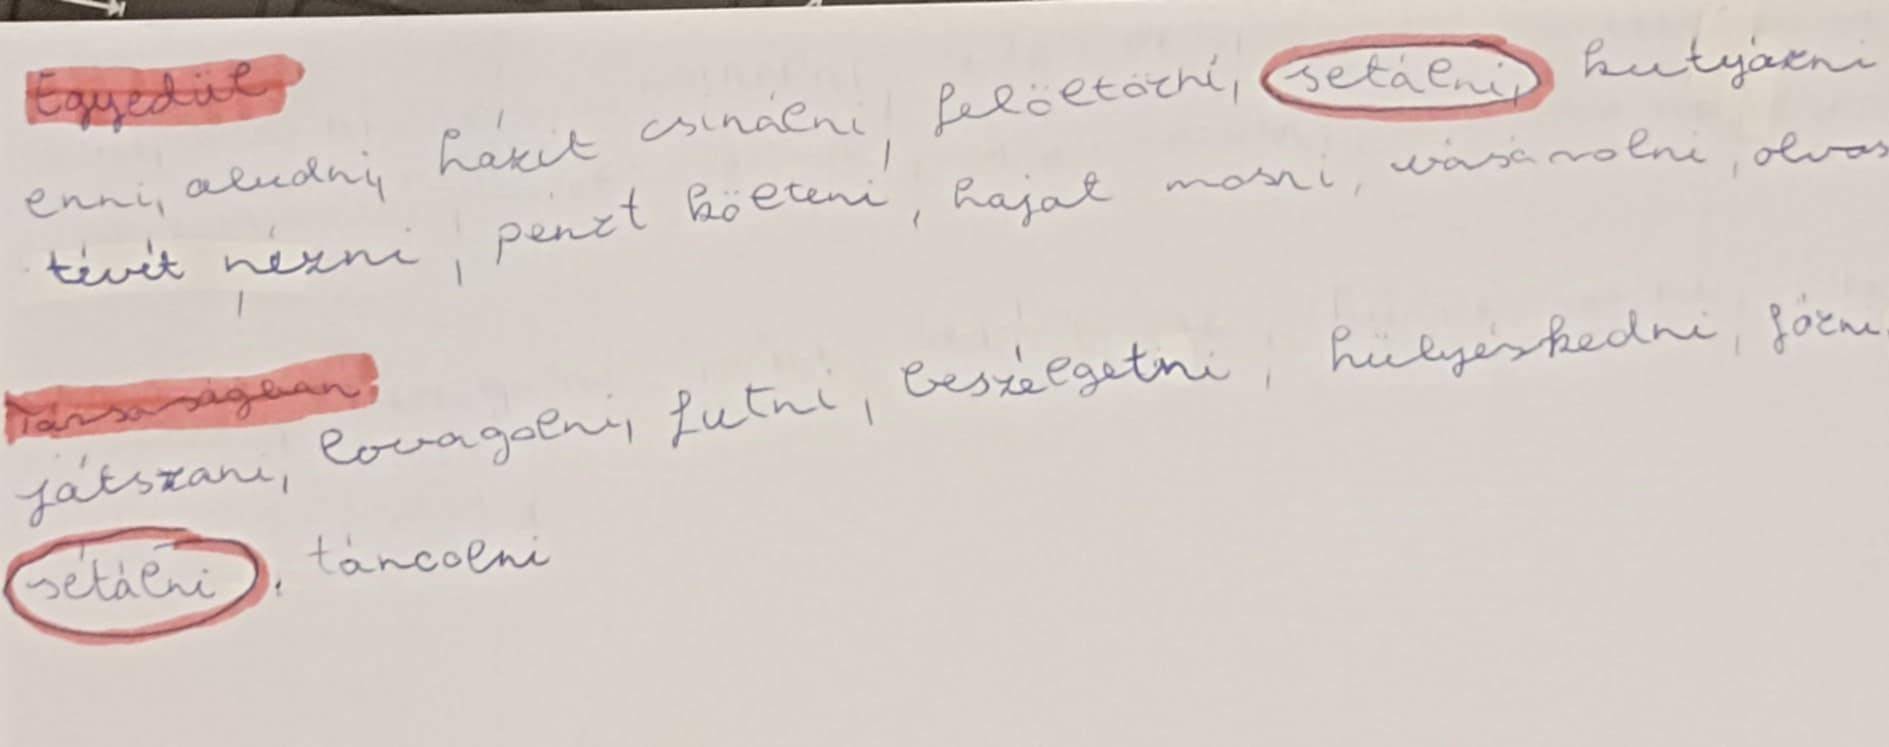 Egyedül
enni, aludni, házit csinálni, felöltözni, sétálni, kutyázni
tévét nézni, pénzt költeni, hajat mosni, vásárolni, olvas
Társaságban
játszani, lovagolni, futni, beszélgetni, hülyéskedni, főzni
sétálni, táncolni